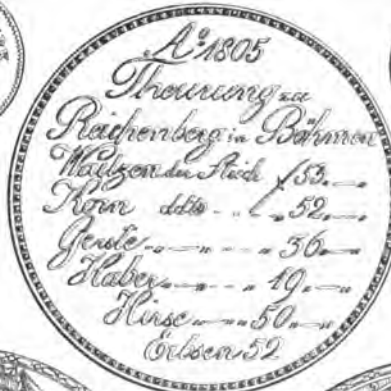 Aº 1805
Theurung zu
Reichenberg in Böhmen
Waitzen der Strich f 53.—
Korn ddto - - f „ 52.„—
Gerste „—„—„ 36„—„
Haber „—„—„ 19„—„
Hirse „—„—„ 50„—„
Erbsen 52